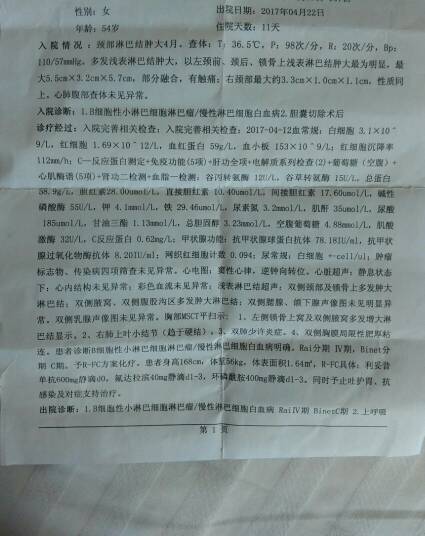 性别：女
出院日期：2017年04月22日
年龄：54岁
住院天数：11天
入院情况：颈部淋巴结肿大4月。查体：T：36.5℃，P：98次/分，R：20次/分，Bp：
110/57mmHg。多发浅表淋巴结肿大，以左颈前、颈后、锁骨上浅表淋巴结肿大最为明显。最
大5.5cm×3.2cm×5.7cm，部分融合，有触痛；右颈部最大约3.3cm×1.0cm×1.1cm，性质同
上。心肺腹部查体未见异常。
入院诊断：1.B细胞性小淋巴细胞淋巴瘤/慢性淋巴细胞白血病2.胆囊切除术后
诊疗经过：入院完善相关检查：入院完善相关检查：2017-04-12血常规：白细胞 3.1×10^
9/L，红细胞 1.69×10^12/L，血红蛋白 59g/L，血小板 153×10^9/L；红细胞沉降率
112mm/h；C—反应蛋白测定+免疫功能(5项)+肝功全项+电解质系列检查(2)+葡萄糖（空腹）+
心肌酶谱(5项)+肾功二检+血脂一检测：谷丙转氨酶 12U/L，谷草转氨酶 15U/L，总蛋白
58.9g/L，胆红素28.00umol/L，直接胆红素 10.40umol/L，间接胆红素 17.60umol/L，碱性
磷酸酶 55U/L，钾 4.1mmol/L，铁 29.46umol/L，尿素氮 3.2mmol/L，肌酐 35umol/L，尿酸
185umol/L，甘油三酯 1.13mmol/L，总胆固醇 3.23mmol/L，空腹葡萄糖 4.88mmol/L，肌酸
激酶 32U/L，C反应蛋白 0.62mg/L；甲状腺功能：抗甲状腺球蛋白抗体 78.18IU/ml，抗甲状
腺过氧化物酶抗体 8.20IU/ml；网织红细胞计数 0.094；尿常规：白细胞 +-cell/ul；肿瘤
标志物、传染病四项筛查未见异常。心电图：窦性心律，逆钟向转位。心脏超声：静息状态
下：心内结构未见异常；彩色血流未见异常；浅表淋巴结超声：双侧颈部及锁骨上多发肿大
淋巴结；双侧腋窝、双侧腹股沟区多发肿大淋巴结；双侧腮腺、颌下腺声像图未见明显异
常。双侧乳腺声像图未见异常。胸部MSCT平扫示：1、左侧锁骨上窝及双侧腋窝多发增大淋
巴结显示。2、右肺上叶小结节（趋于硬结）。3、双肺少许炎症。4、双侧胸膜局限性肥厚粘
连。患者诊断B细胞性小淋巴细胞淋巴瘤/慢性淋巴细胞白血病明确。Rai分期 Ⅳ期，Binet分
期 C期。予R-FC方案化疗。患者身高168cm，体重56kg，体表面积1.64m²，R-FC具体：利妥昔
单抗600mg静滴d0，氟达拉滨40mg静滴d1-3，环磷酰胺400mg静滴d1-3。同时予止吐护胃、抗
感染及对症支持治疗。
出院诊断：1.B细胞性小淋巴细胞淋巴瘤/慢性淋巴细胞白血病 RaiⅣ期 BinetC期 2.上呼吸
第 1 页